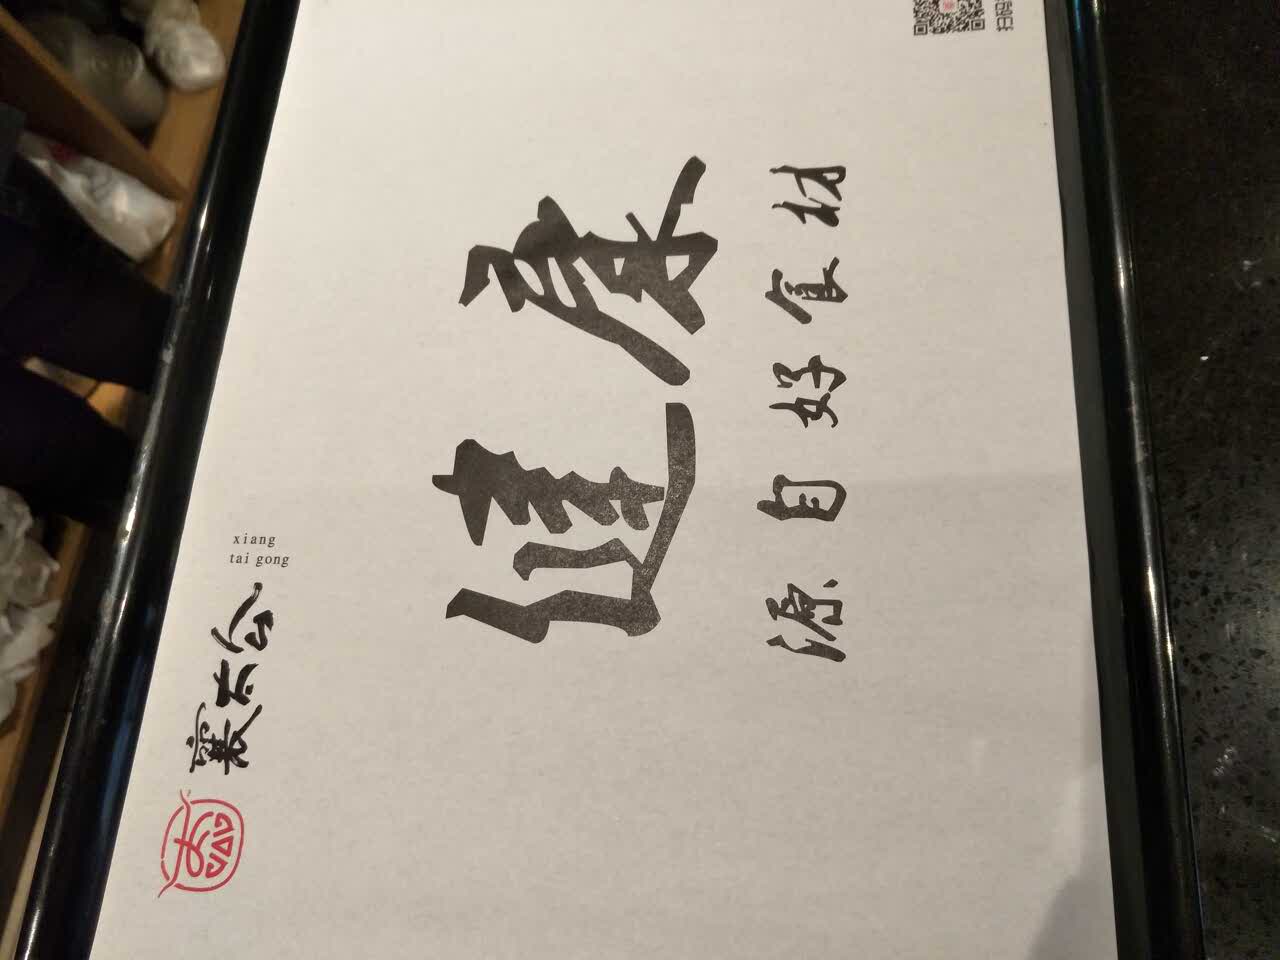 襄太公
xiang
tai gong
健康
源自好食材